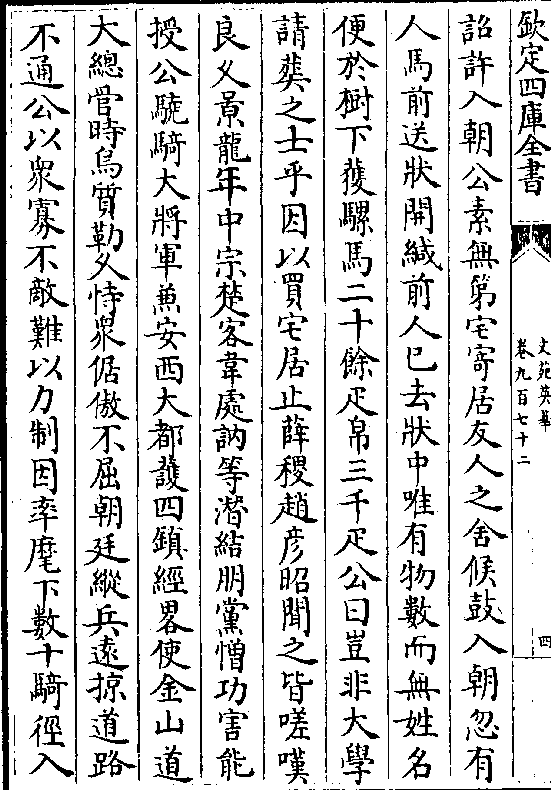 欽定四庫全書
文苑英華
卷九百七十二
四
詔許入朝公素無第宅寄居友人之舍候鼓入朝忽有
人馬前送狀開緘前人已去狀中唯有物數而無姓名
便於樹下獲騾馬二十餘疋帛三千疋公曰豈非大學
請葬之士乎因以買宅居止薛稷趙彦昭聞之皆嗟嘆
良乆景龍年中宗楚客韋處訥等潛結朋黨憎功害能
授公驍騎大將軍兼安西大都護四鎮經畧使金山道
大總管時烏質勒乆恃衆倨傲不屈朝廷縱兵遠掠道路
不通公以衆寡不敵難以力制因率麾下數十騎徑入